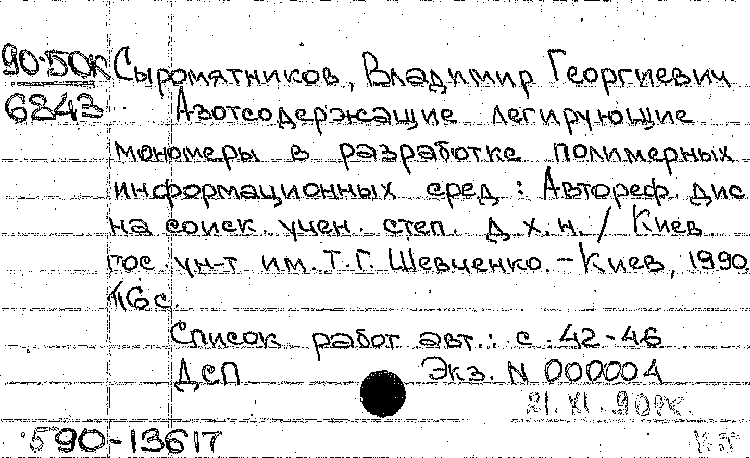 90-50К Сыромятников, Владимир Георгиевич
6843 Азотсодержащие легирующие
мономеры в разработке полимерных
информационных сред : Автореф. дис.
на соиск. учен. степ. д.х.н. / Киев.
гос. ун-т им. Т.Г. Шевченко. - Киев, 1990.
46 с.
Список работ авт.: с. 42-46
ДСП Экз. N 000004
21.XI.90
590-13617